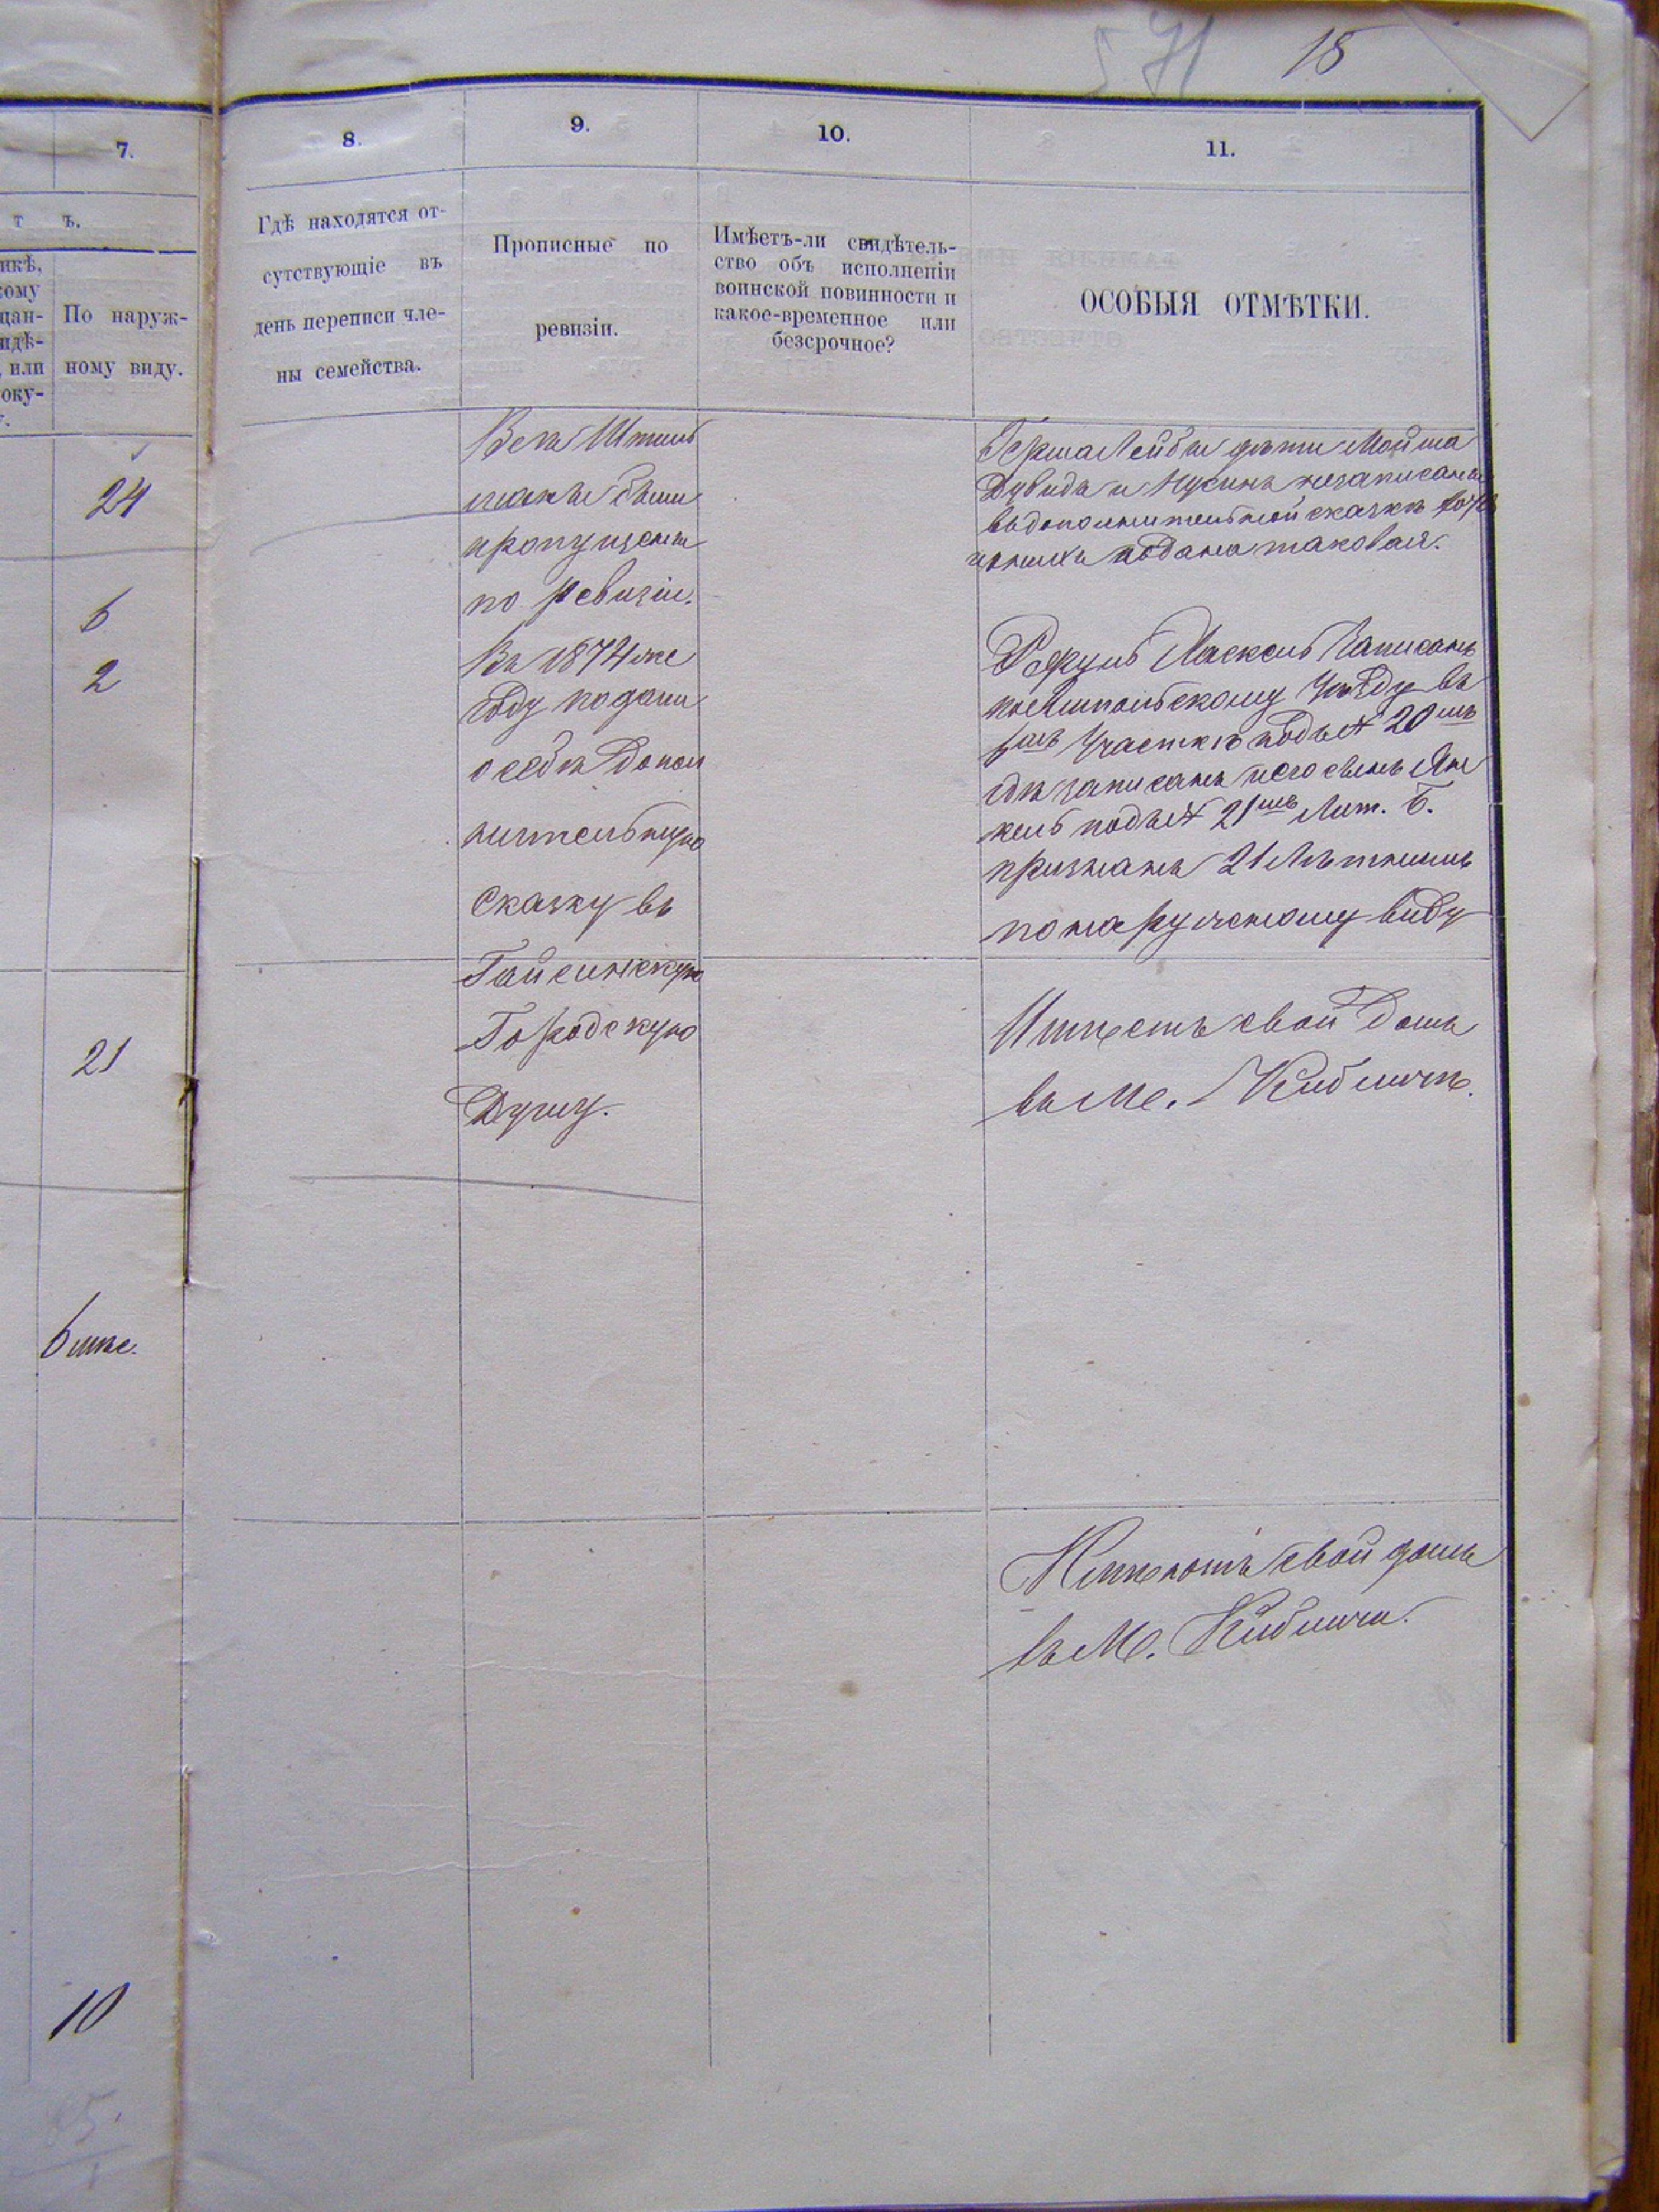 571 18
7. 8. 9. 10. 11.
т ъ.
икѣ,
кому
цан-
идѣ-
, или
оку-
у.
По наруж-
ному виду.
Гдѣ находятся от-
сутствующіе въ
день переписи чле-
ны семейства.
Прописные по
ревизіи.
Имѣетъ-ли свидѣтель-
ство объ исполненіи
воинской повинности и
какое-временное или
безсрочное?
ОСОБЫЯ ОТМѢТКИ.
24
6
2
21
6 мѣс.
10
Всѣ
были
пропущены
по ревизіи.
Въ 1874 же
году подали
о себѣ допол
нительную
Сказку въ
Гайсинскую
Городскую
Думу.
Герша Лейбы дѣти Мойша
Дувидъ и Нусинъ незаписаны
въ дополнительной сказкѣ
подана таковая.
Хаскель Записанъ
уѣзду въ
6мъ Участкѣ подъ № 20мъ
гдѣ записанъ и его сынъ Ян
кель подъ № 21мъ Лит. Б.
признанъ 21 Лѣтнимъ
по наружному виду
Имѣетъ свой домъ
въ М. Кибличѣ.
Имѣютъ свой домъ
въ М. Кибличи.